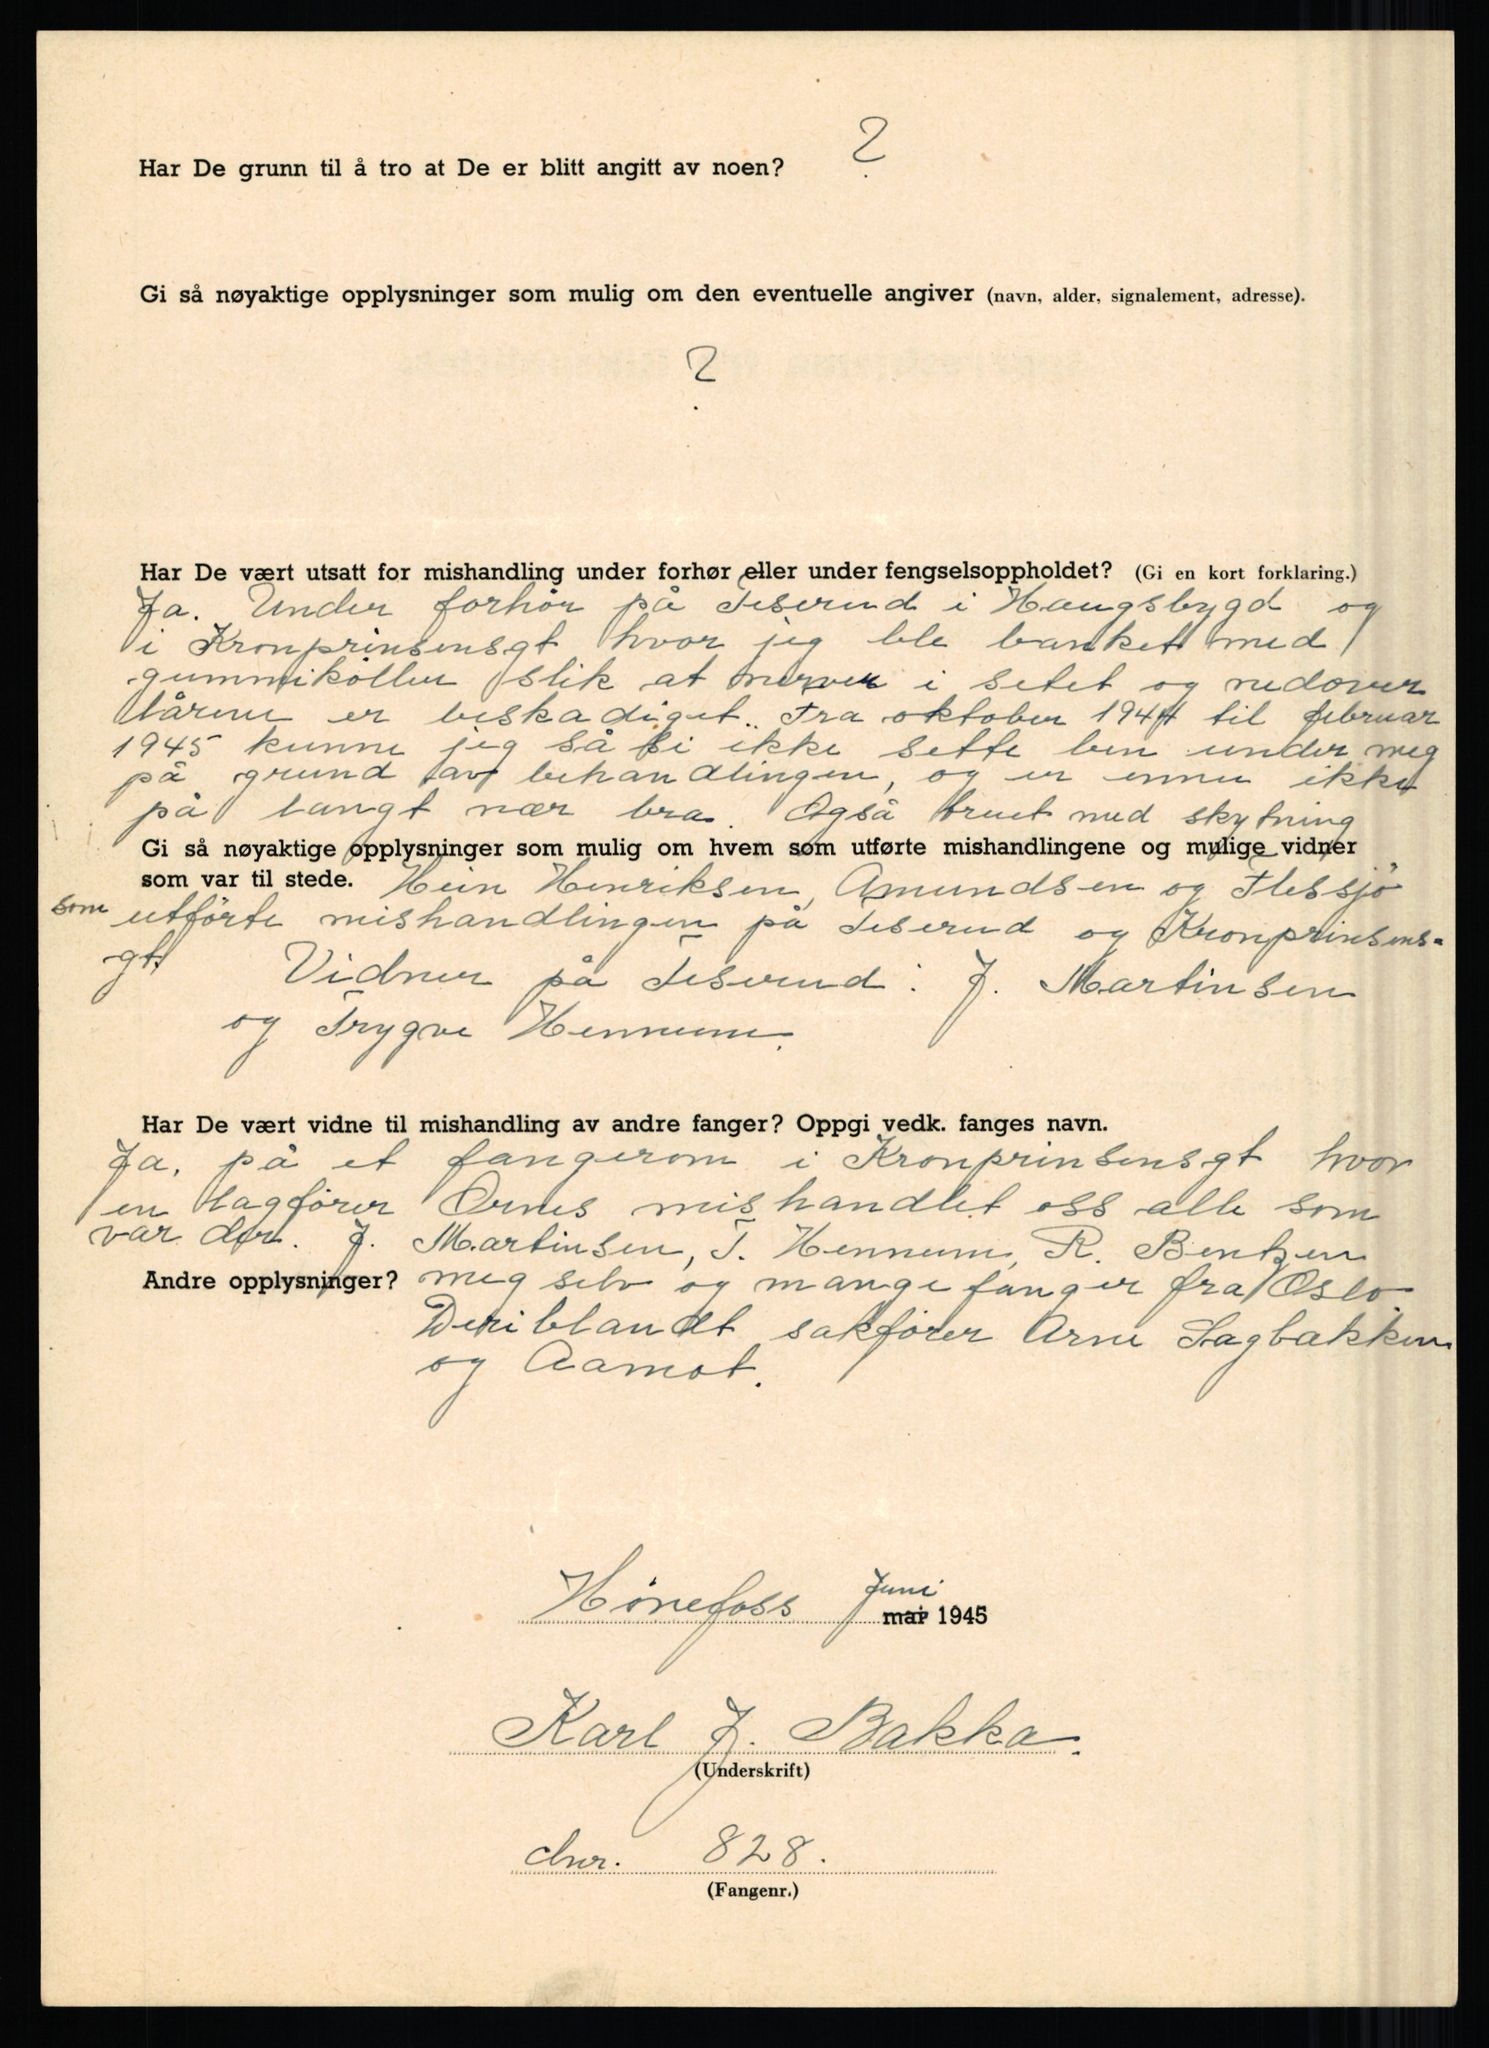 Har De grunn til å tro at De er blitt angitt av noen? ?
Gi så nøyaktige opplysninger som mulig om den eventuelle angiver (navn, alder, signalement, adresse).
?
Har De vært utsatt for mishandling under forhør eller under fengselsoppholdet? (Gi en kort forklaring.)
Ja. Under forhør på Teserud i Haugsbygd og
i Kronprinsensgt hvor jeg ble banket med
gummikøller slik at nerver i setet og nedover
lårene er beskadiget. Fra oktober 1944 til februar
1945 kunne jeg så si ikke sette ben under meg
på grund av behandlingen, og er ennu ikke
på langt nær bra. Også truet med skytning
Gi så nøyaktige opplysninger som mulig om hvem som utførte mishandlingene og mulige vidner
som var til stede. Hein Henriksen, Amundsen og Flessjö
som utførte mishandlingen på Teserud og Kronprinsens-
gt. Vidner på Teserud: J. Martinsen
og Trygve Hennum.
Har De vært vidne til mishandling av andre fanger? Oppgi vedk. fanges navn.
Ja, på et fangerom i Kronprinsensgt hvor
en lagfører Ørnes mishandlet oss alle som
var der. J. Martinsen, T. Hennum, R. Bentzen
Andre opplysninger? meg selv og mange fanger fra Oslo
Deriblandt sakfører Arne Sagbakken
og Aamot.
Hønefoss Juni mai 1945
Karl J. Bakka.
(Underskrift)
chnr. 828.
(Fangenr.)